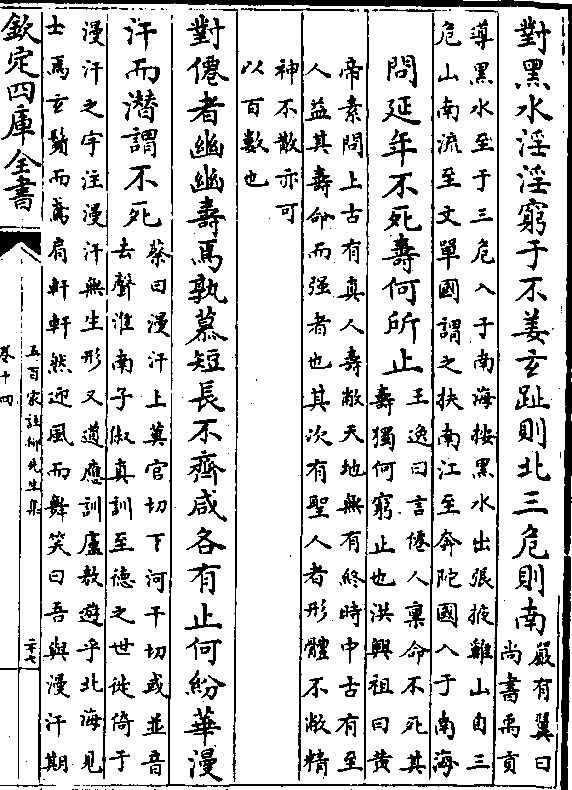 對黑水淫淫窮于不姜玄趾則北三危則南嚴有翼曰
尚書禹貢
導黑水至于三危入于南海按黑水出張掖雞山自三
危山南流至文單國謂之扶南江至奔陀國入于南海
問延年不死壽何所止王逸曰言僊人禀命不死其
壽獨何窮止也洪興祖曰黄
帝素問上古有真人壽敝天地無有終時中古有至
人益其壽命而强者也其次有聖人者形體不敝精
神不散亦可
以百數也
對僊者幽幽壽焉孰慕短長不齊咸各有止何紛華漫
汗而潜謂不死蔡曰漫汗上莫官切下河干切或並音
去聲淮南子俶真訓至德之世徙倚于
漫汗之宇注漫汗無生形又道應訓盧敖遊乎北海見
士焉玄鬢而鳶肩軒軒然迎風而舞笑曰吾與漫汗期
欽定四庫全書
五百家註柳先生集
卷十四
二十七